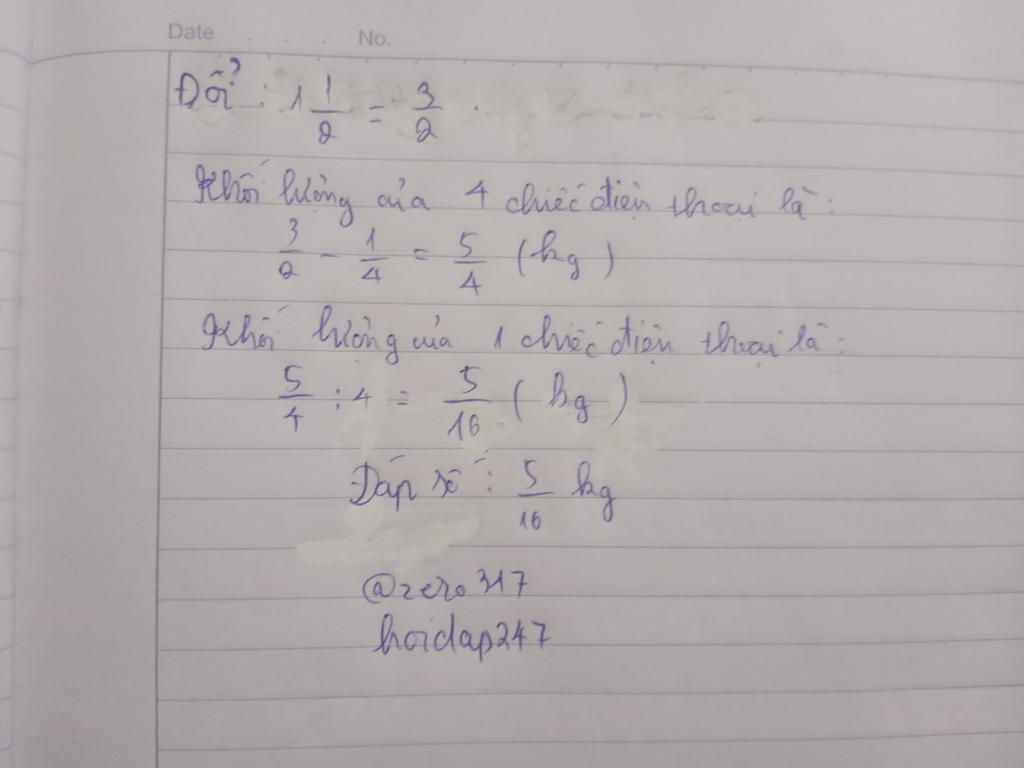 Date . . . . No.
Đổi : 1 1/2 = 3/2 .
Khối lượng của 4 chiếc điện thoại là :
3/2 - 1/4 = 5/4 (kg)
Khối lượng của 1 chiếc điện thoại là :
5/4 : 4 = 5/16 (kg)
Đáp số : 5/16 kg
@zero317
hoidap247